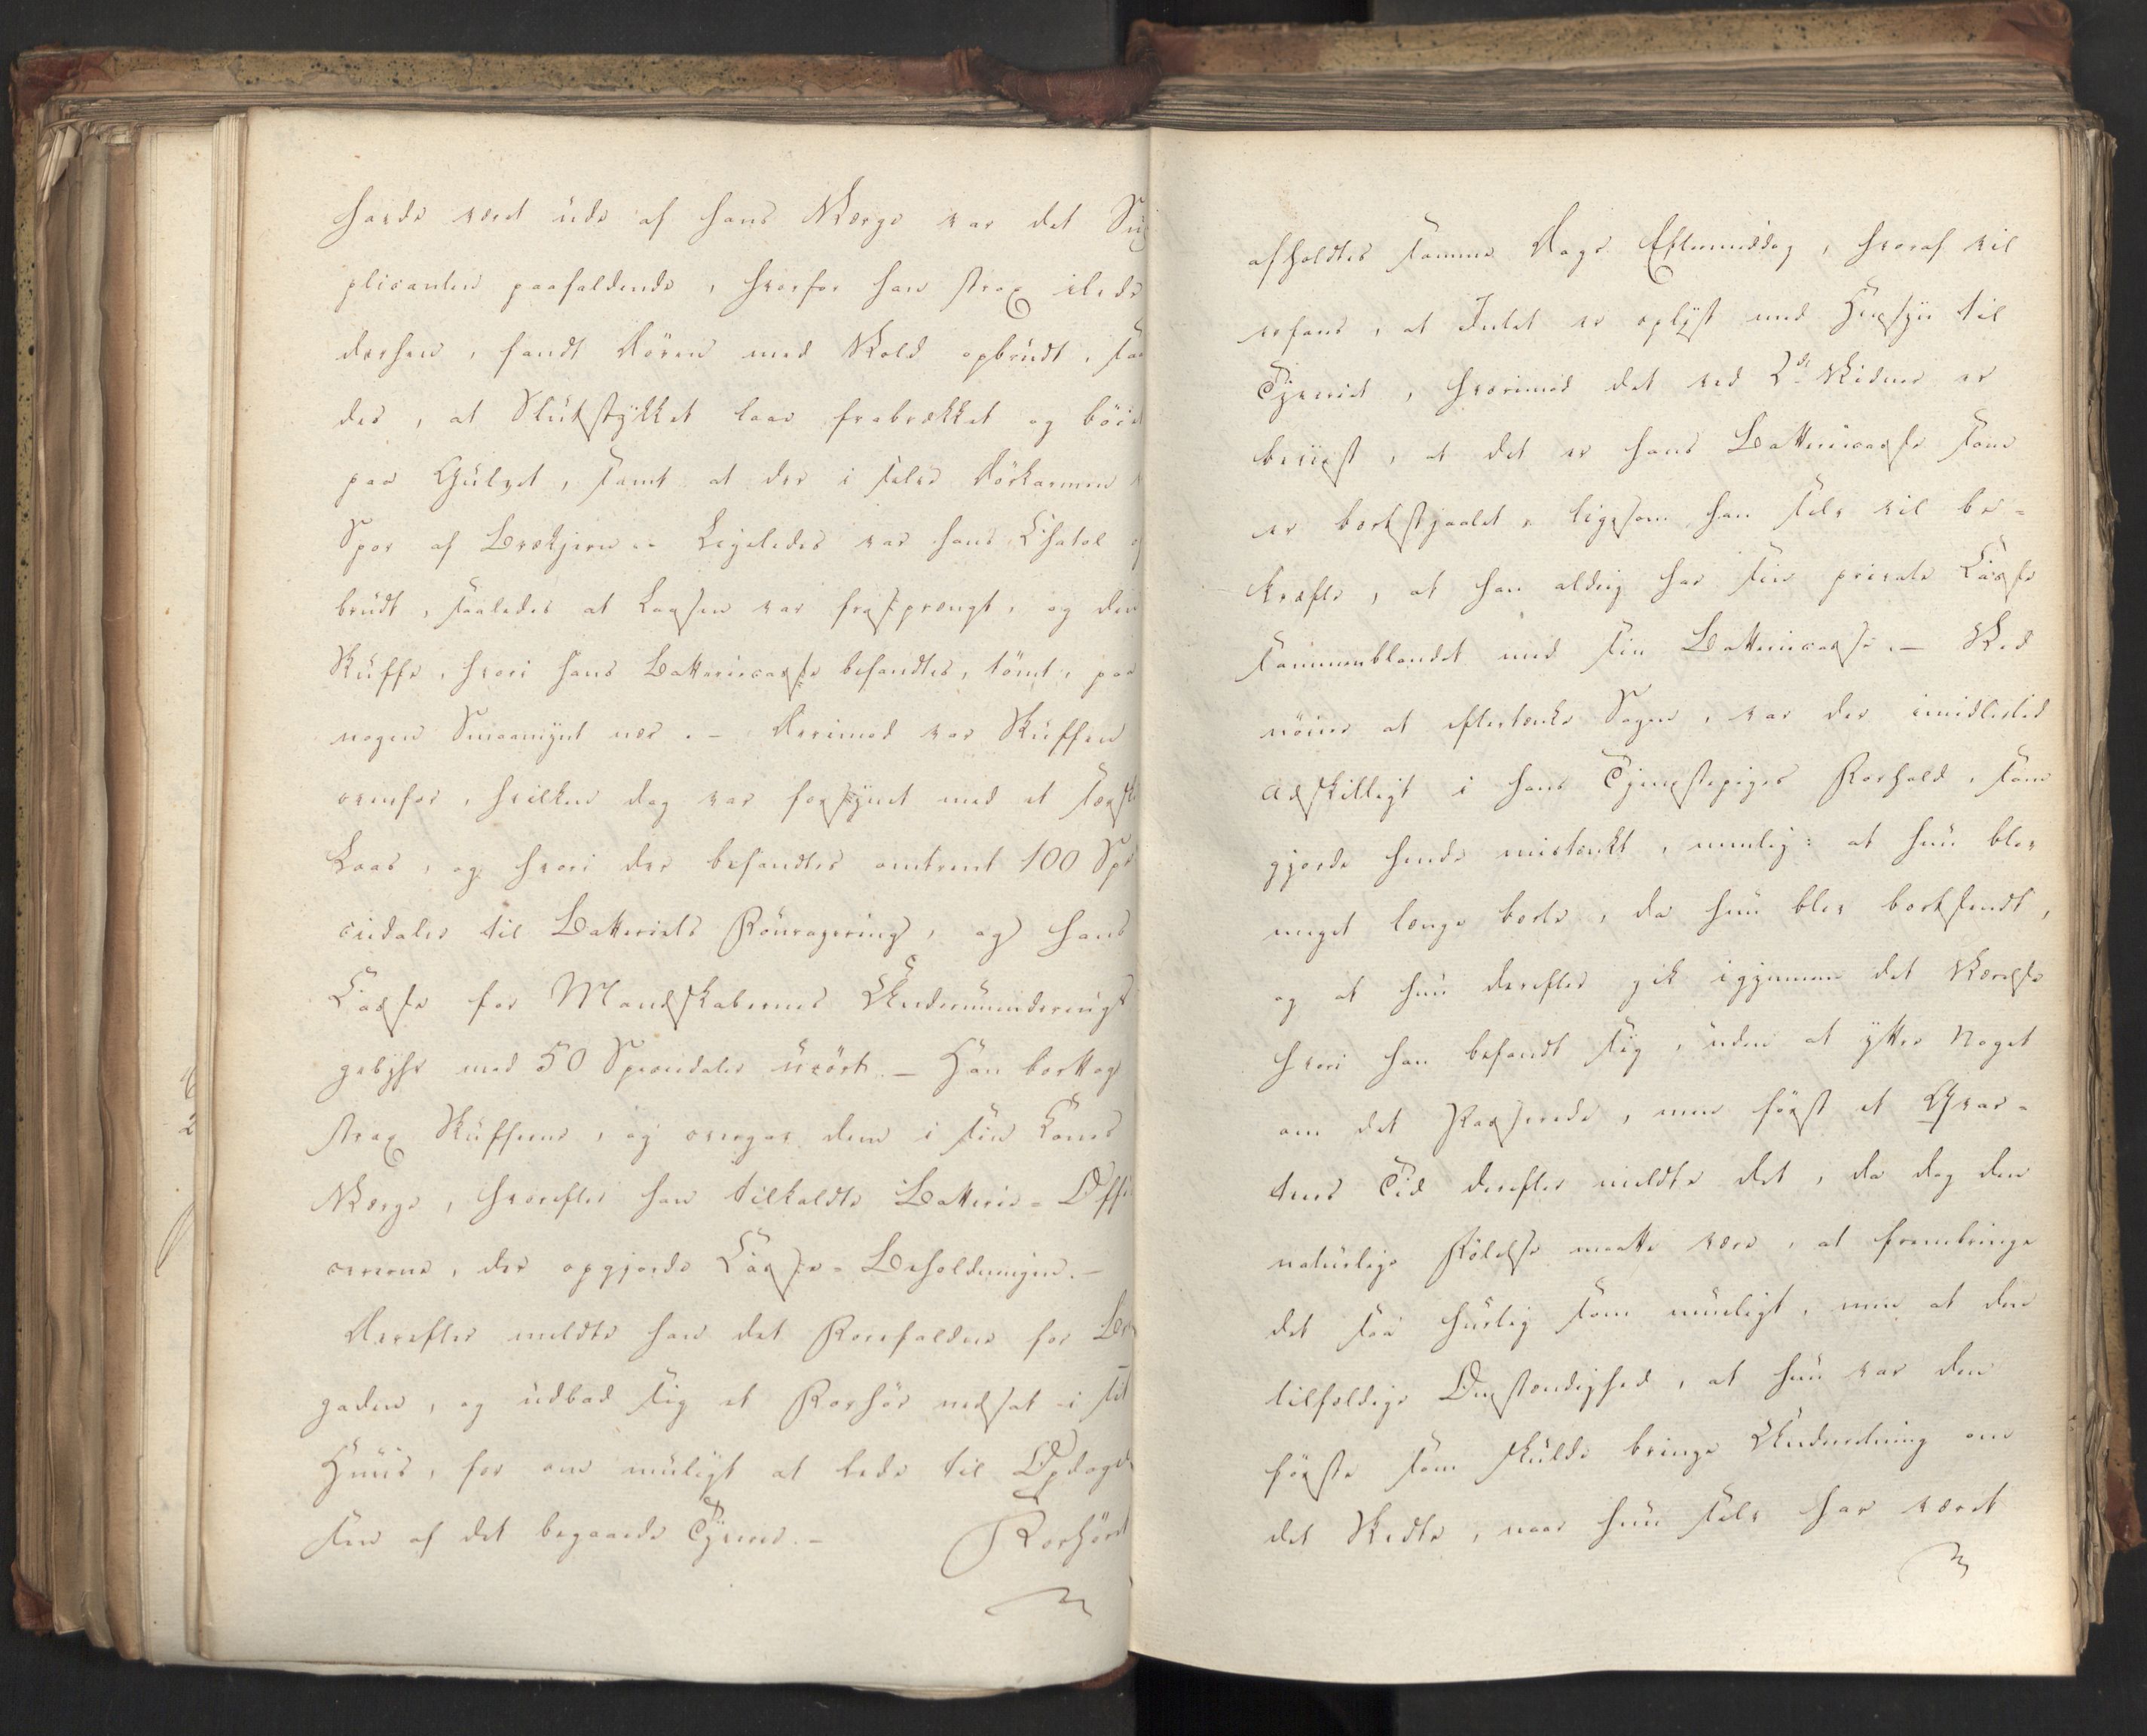 havde været ude af hans Værge var det Sup
plicanten paafaldende, hvorfor han strax ilede
derhen, fandt Dören med Vold opbrudt, saa
des, at Slutstykket laae frabrækket og böiet
paa Gulvet, samt at der i selve Dörkarmen
Spor af Brækjern. Ligeledes var hans Chatol op
brudt, saaledes at Laasen var frasprængt, og den
Skuffe, hvori hans Battericasse befandtes, tömt, paa
nogen Smaamynt nær. – Derimod var Skuffen
ovenfor, hvilken dog var forsynet med et særskilt
Laas, og hvori der befandtes omtrent 100 Spe
ciedaler til Batteriets Fouragering, og hans
Casse for Mandskabernes Undermunderings
gebyhr med 50 Speciedaler urört. – Han borttog
strax Skufferne, og overgav dem i sin Kones
Værge, hvorefter han tilkaldte Batterie-Offi
cererne, der opgjorde Casse-Beholdningen. –
Derefter meldte han det Forefaldne for Bri
gaden, og udbad sig et Forhör nedsat i sit
Huus, for om muligt at lede til Opdagel
sen af det begaaede Tyverie. –
Forhöret
afholdtes samme Dags Eftermiddag, hvoraf vil
erfares, at Intet er oplyst med Hensyn til
Tyveriet, hvorimod det ved 2de Vidner er
beviist, at det er hans Battericasse som
er bortstjaalet, ligesom han selv vil be-
kræfte, at han aldrig har sin private Casse
sammenblandet med sin Battericasse. – Ved
nöiere at eftertænke Sagen, var der imidlertid
adskilligt i hans Tjenestepiges Forhold, som
gjorde hende mistænkt, nemlig: at hun blev
meget længe borte, da hun blev bortsendt,
og at hun derefter gik igjennem det Værelse
hvori han befandt sig, uden at yttre Noget
om det Passerede, men först et Qvar-
teers Tid derefter meldte det, da dog den
naturlige Fölelse maatte være, at frembringe
det saa hurtig som mueligt, men at den
tilfældige Omstændighed, at hun var den
förste som skulde bringe Underretning om
det Skedte, naar hun selv har været